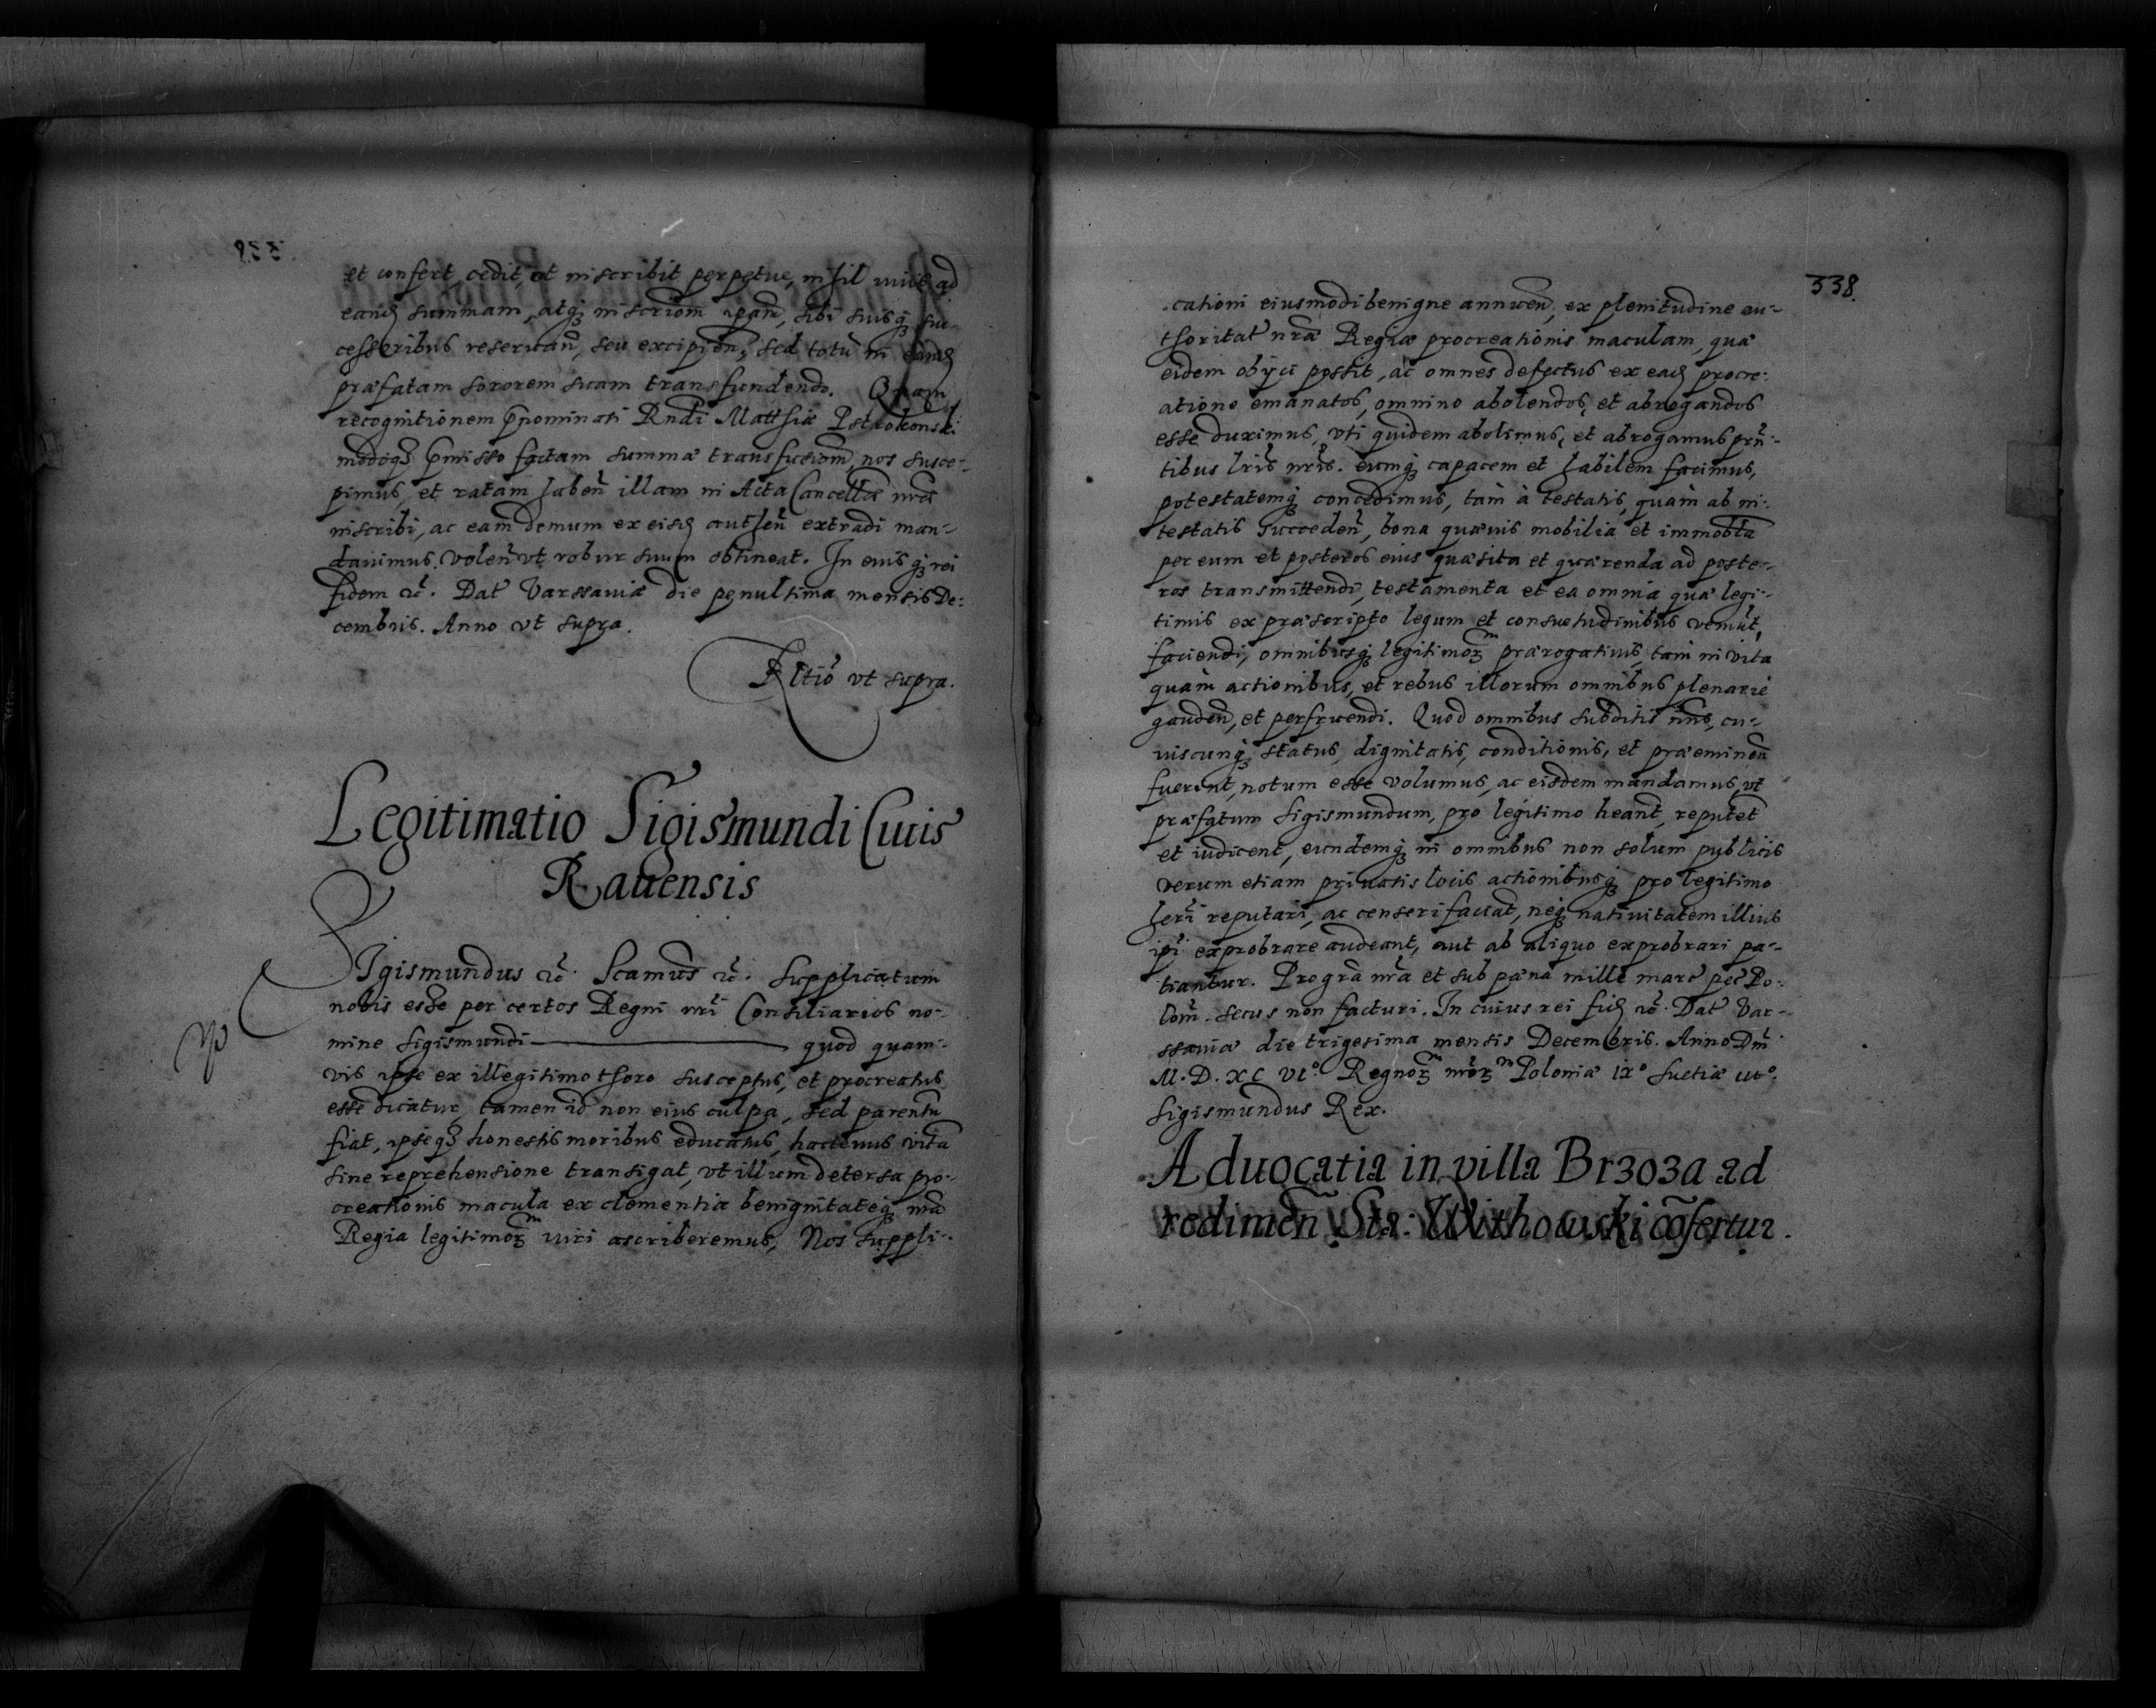 et confert, cedit, et inscribit perpetue, nihil iuris ad
eandẽ summam, atq; inscriom̃ ipam̃, sibi suisq; suc-
cessoribus reseruan̄, seu excipien̄, sed totũ in eandẽ
præfatam sororem suam transfundendo. Quam
recognitionem p̄nominati Rndi Matthiæ Pstrokonski
modoq; p̄misso factam summæ transfusiom̃, nos susce-
pimus, et ratam haben̄ illam in Acta Cancellæ nræ
inscribi, ac eam demum ex eisd̃ authen̄ extradi man-
dauimus, volen̄ vt robur suum obtineat. In cuius q; rei
fidem &c̄. Dat̃ Varssauiæ die penultima mensis De-
cembris. Anno vt supra.
Rltio vt supra.
Legitimatio Sigismundi Ciuis
Rauensis
Sigismundus &c̄. Scamus̃ &c̄. Supplicatum
nobis esse per certos Regni nr̃i Consiliarios no-
mine Sigismundi ——— quod quam-
vis ipse ex illegitimo thoro susceptus, et procreatus
esse dicatur, tamen id non eius culpa, sed parentũ
fiat, ipseq; honestis moribus educatus, hactenus vitã
sine reprehensione transigat, vt illum detersa pro-
creationis macula ex clementia benignitateq; nrã
Regia legitimorꝫ viri ascriberemus, Nos suppli-
338.
cationi eiusmodi benigne annuen̄, ex plenitudine au-
thoritat̃ nræ Regiæ procreationis maculam, quæ
eidem obijci possit, ac omnes defectus ex ead̃ procre-
atione emanatos, omnino abolendos, et abrogandos
esse duximus, vti quidem abolimus, et abrogamus prñ-
tibus lris̃ nris̃. eumq; capacem et habilem facimus,
potestatemq; concedimus, tam à testatis, quam ab in-
testatis succeden̄, bona quæuis mobilia et immobĩa
per eum et posteros eius quæsita et quærenda ad poste-
ros transmittendi, testamenta et ea omnia quæ legi-
timis ex præscripto legum et consuetudinibus veniũt,
faciendi, omnibusq; legitimorꝫ prærogatiuis, tam in vita
quam actionibus, et rebus illorum omnibus plenarie
gauden̄, et perfruendi. Quod omnibus subditis nris̃, cu-
iuscunq; status, dignitatis, conditionis, et præeminen̄
fuerint, notum esse volumus, ac eisdem mandamus, vt
præfatum Sigismundum, pro legitimo heant̃, reputent̃
et iudicent, eundemq; in omnibus non solum publicis
verum etiam priuatis locis actionibusq; pro legitimo
heri reputari, ac censeri faciãt, neq; natiuitatem illius
ipi̇ exprobrare audeant, aut ab aliquo exprobrari pa-
tiantur. Pro gra nrã et sub pæna mille marc̃ pec̃ Po-
lom̃. secus non facturi. In cuius rei fid̃ &c̄. Dat̃ Var-
ssauiæ die trigesima mensis Decembris. Anno Dm̃
M.D.XC VIº Regnorꝫ nrorꝫ Poloniæ IXº Suetiæ IIIº.
Sigismundus Rex.
Aduocatia in villa Brzoza ad
redimen̄ Sta: Withowski cõfertur.